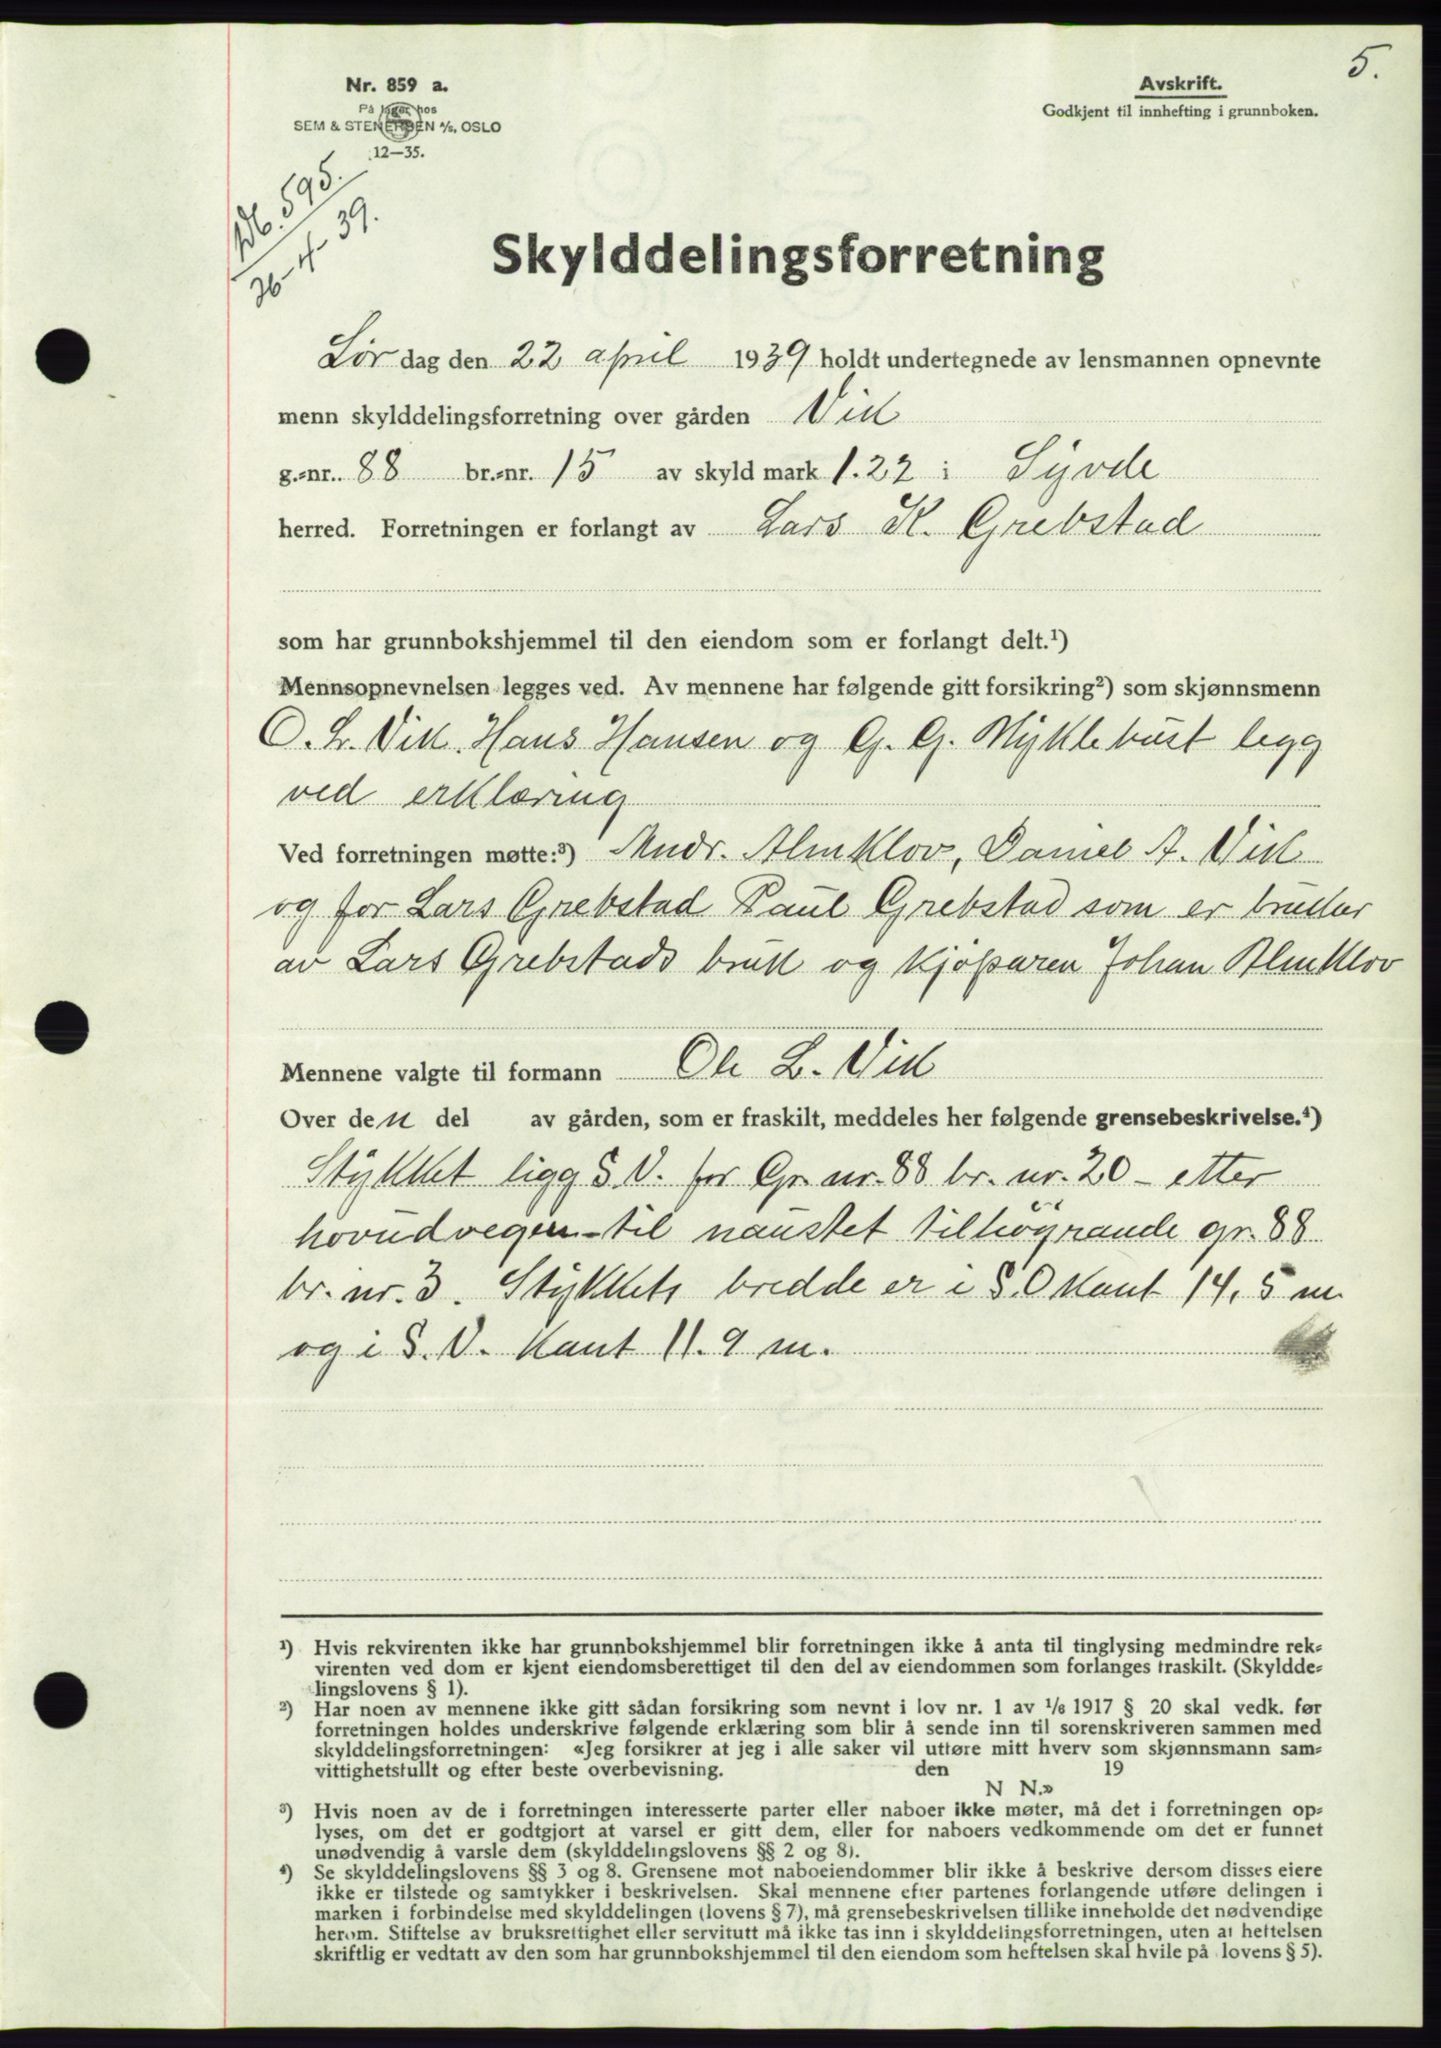 5.
Nr. 859 a.
På lager hos
SEM & STENERSEN A/S, OSLO
12—35.
Avskrift.
Godkjent til innhefting i grunnboken.
Db. 595.
26-4-39.
Skylddelingsforretning
Lør dag den 22 april 1939 holdt undertegnede av lensmannen opnevnte
menn skylddelingsforretning over gården Vik
g.-nr. 88 br.-nr. 15 av skyld mark 1.22 i Syvde
herred. Forretningen er forlangt av Lars K. Grebstad
som har grunnbokshjemmel til den eiendom som er forlangt delt.¹)
Mennsopnevnelsen legges ved. Av mennene har følgende gitt forsikring²) som skjønnsmenn
O. L. Vik. Hans Hansen og G. G. Myklebust legg
ved erklæring
Ved forretningen møtte:³) Andr. Almklov, Daniel A. Vik
og for Lars Grebstad Paul Grebstad som er brukar
av Lars Grebstads bruk og kjøparen Johan Almklov
Mennene valgte til formann Ole L. Vik
Over den del av gården, som er fraskilt, meddeles her følgende grensebeskrivelse.⁴)
Stykket ligg S.V. for Gr. nr. 88 br. nr. 20 - etter
hovudvegen - til naustet tilhøyrande gr. 88
br. nr. 3. Stykkets bredde er i S.O kant 14,5 m
og i S.V. kant 11.9 m.
¹) Hvis rekvirenten ikke har grunnbokshjemmel blir forretningen ikke å anta til tinglysing medmindre rek-
virenten ved dom er kjent eiendomsberettiget til den del av eiendommen som forlanges fraskilt. (Skyldde-
lingslovens § 1).
²) Har noen av mennene ikke gitt sådan forsikring som nevnt i lov nr. 1 av 1/6 1917 § 20 skal vedk. før
forretningen holdes underskrive følgende erklæring som blir å sende inn til sorenskriveren sammen med
skylddelingsforretningen: «Jeg forsikrer at jeg i alle saker vil utføre mitt hverv som skjønnsmann sam-
vittighetsfullt og efter beste overbevisning. den 19
N N.»
³) Hvis noen av de i forretningen interesserte parter eller naboer ikke møter, må det i forretningen op-
lyses, om det er godtgjort at varsel er gitt dem, eller for naboers vedkommende om det er funnet
unødvendig å varsle dem (skylddelingslovens §§ 2 og 8).
⁴) Se skylddelingslovens §§ 3 og 8. Grensene mot naboeiendommer blir ikke å beskrive dersom disses eiere
ikke er tilstede og samtykker i beskrivelsen. Skal mennene efter partenes forlangende utføre delingen i
marken i forbindelse med skylddelingen (lovens § 7), må grensebeskrivelsen tillike inneholde det nødvendige
herom. Stiftelse av bruksrettighet eller servitutt må ikke tas inn i skylddelingsforretningen, uten at heftelsen
skriftlig er vedtatt av den som har grunnbokshjemmel til den eiendom som heftelsen skal hvile på lovens § 5).